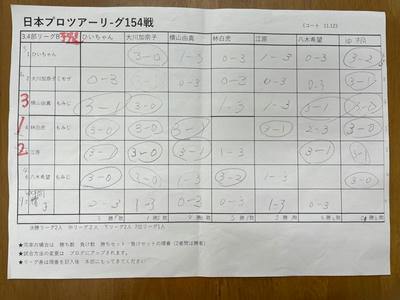 日本プロツアーリーグ154戦
(コート 11.12)
3.4部リーグB ひいちゃん 大川加奈子 横山由真 林白虎 江原 八木希望
1 ひいちゃん 3-0 1-3 0-3 1-3 0-3 3-2
2 大川加奈子 ミモザ 0-3 0-3 0-3 0-3 3-1
3 横山由真 もみじ 3-1 3-0 1-3 1-3 3-0
1 林白虎 もみじ 3-0 3-0 3-1 3-1 2-3 3-0
2 江原 3-1 3-0 3-1 1-3 3-1
八木希望 もみじ 3-0 1-3 3-2 0-3 3-0
3 2-3 1-3 0-3 0-3 1-3 0-3
決勝リーグ2人 中リーグ2人 下リーグ2人 下位リーグ1人
★同率の場合は 勝ち数 負け数 勝ちセット・負けセットの順番 (2者間は勝者)
★試合方法の変更は ブログにアップされます。
★リーグ表は順番を記入後 本部にもってきてください